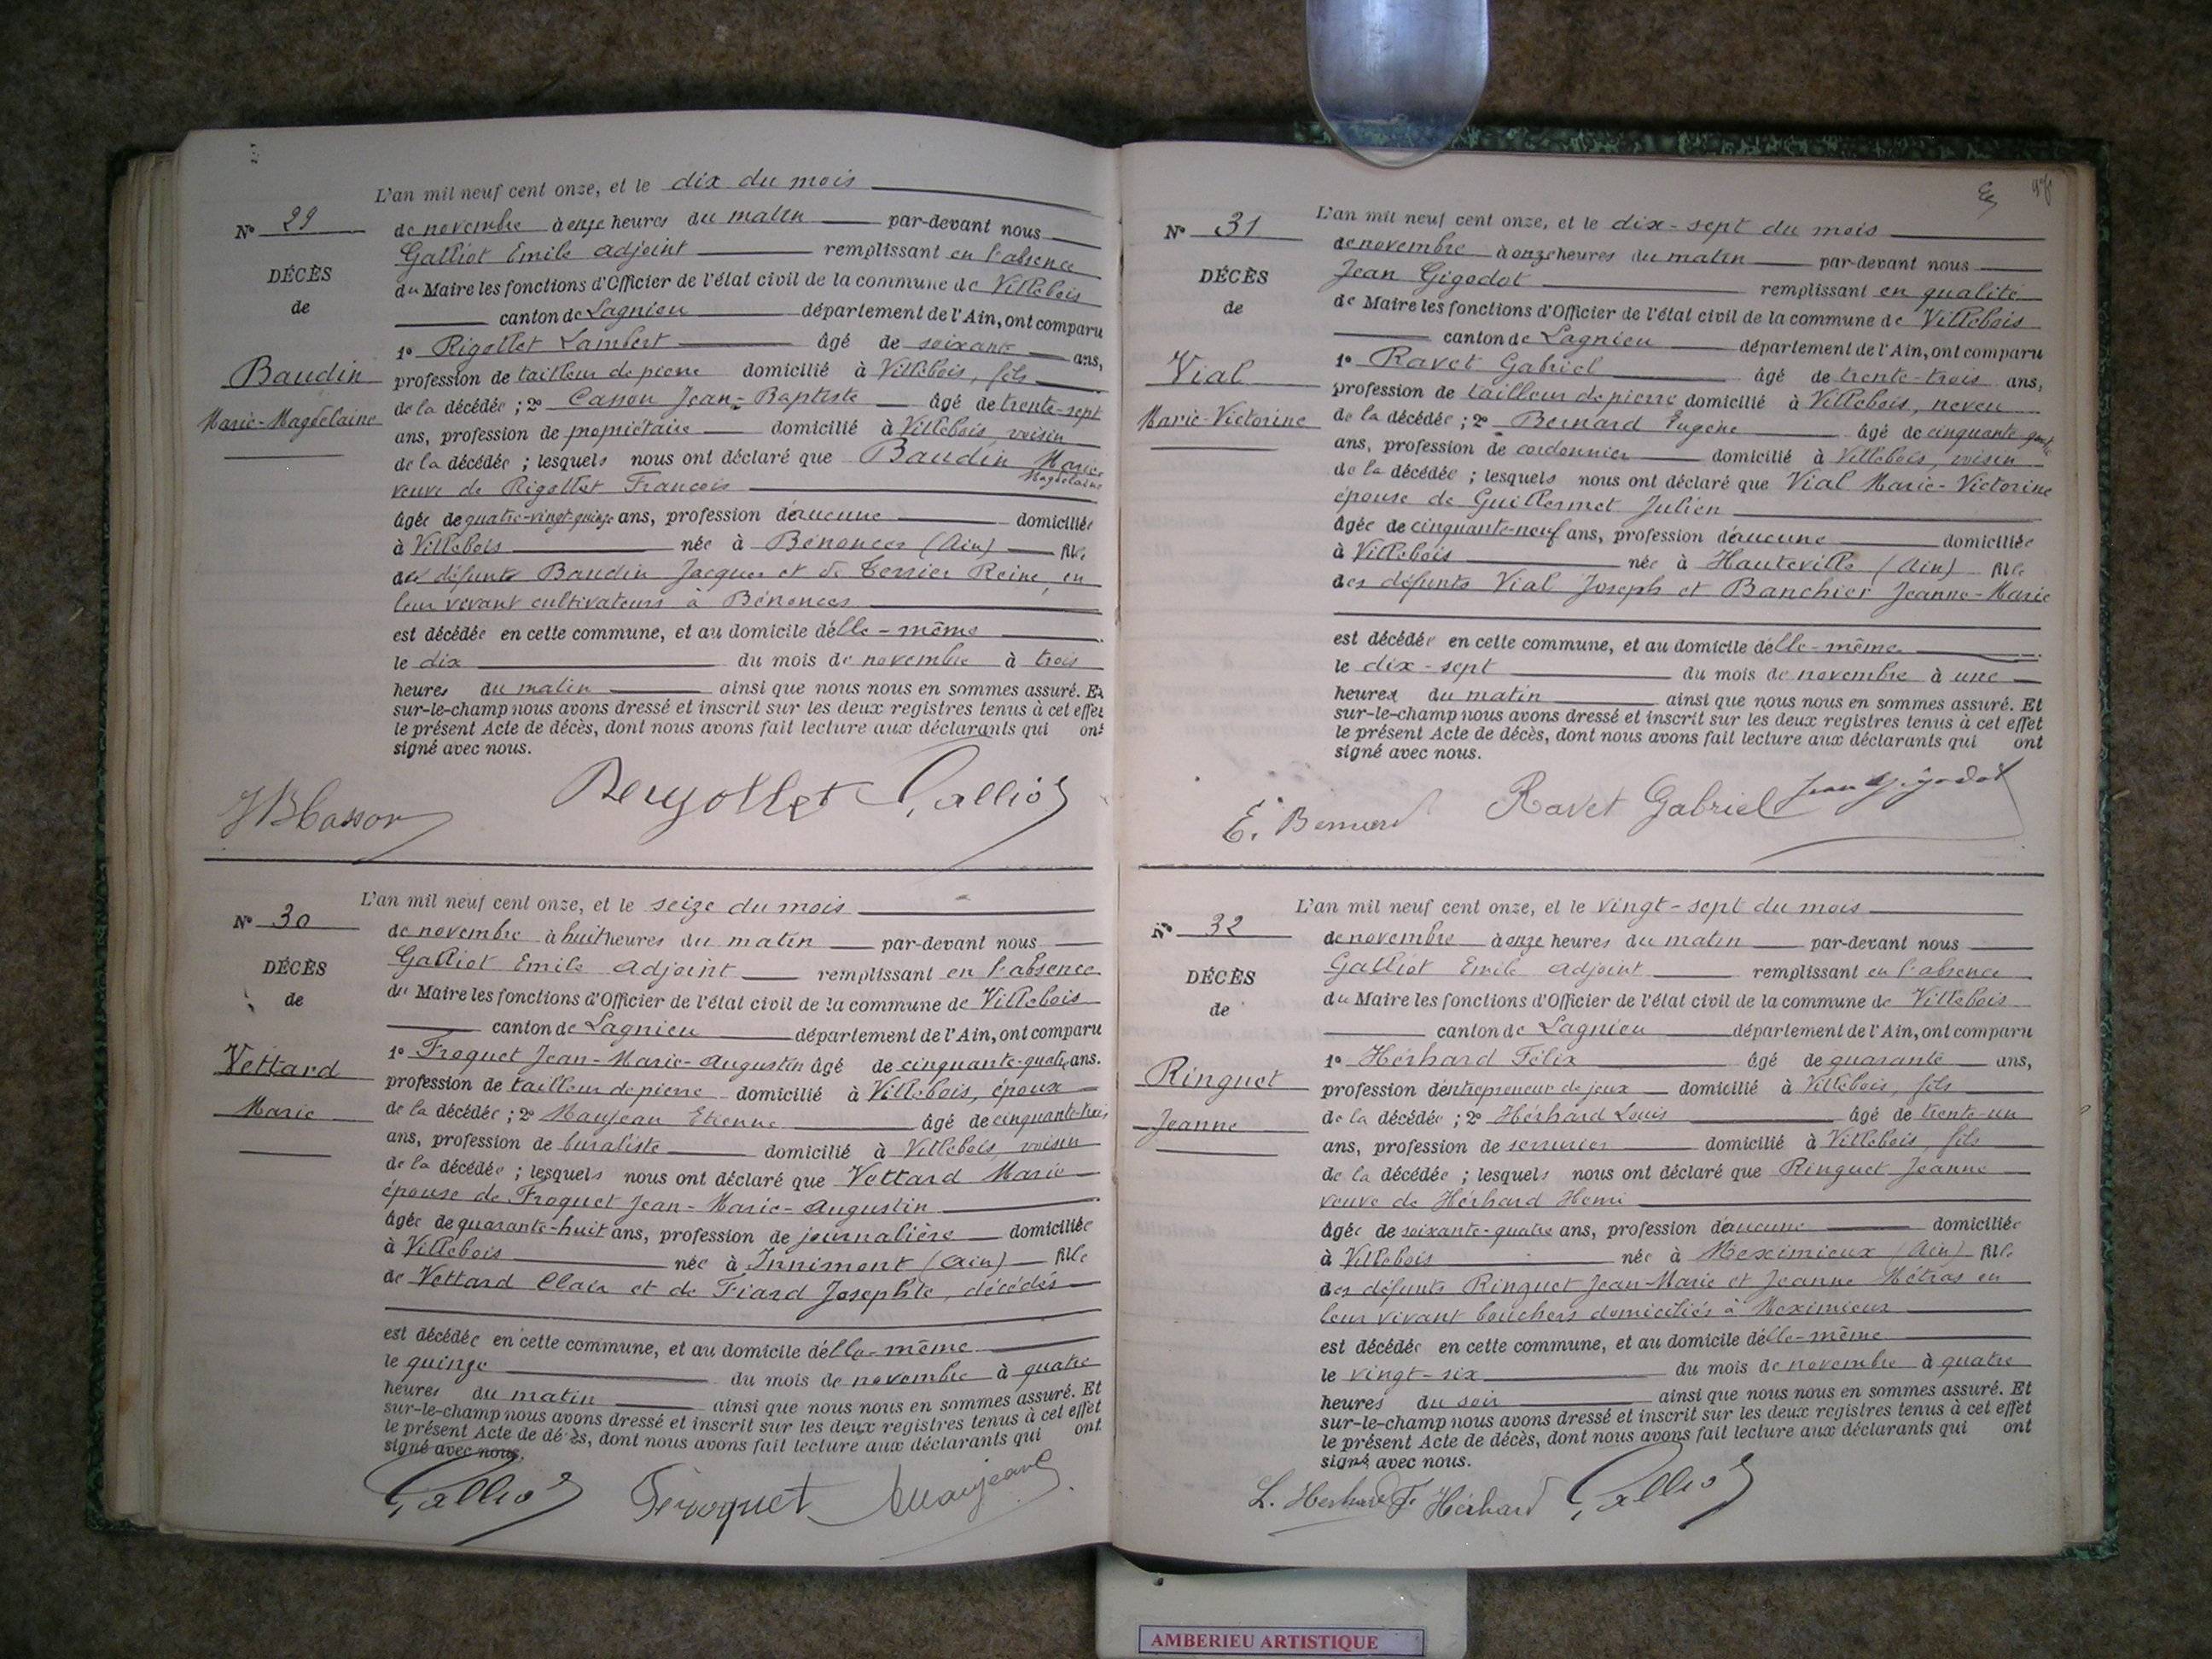 L'an mil neuf cent onze, et le dix du mois
N° 29
de novembre à onze heures du matin par-devant nous
Galliot Emile adjoint remplissant en l'absence
du Maire les fonctions d'Officier de l'état civil de la commune de Villebois
DÉCÈS
de
canton de Lagnieu département de l'Ain, ont comparu
1° Rigollet Lambert âgé de soixante ans,
Baudin
Marie-Magdelaine
profession de tailleur de pierre domicilié à Villebois, fils
de la décédée ; 2° Casson Jean-Baptiste âgé de trente-sept
ans, profession de propriétaire domicilié à Villebois, voisin
de la décédée ; lesquels nous ont déclaré que Baudin Marie
Magdelaine
veuve de Rigollet François
âgée de quatre-vingt-quinze ans, profession d'aucune domiciliée
à Villebois née à Bénonces (Ain) fille
des défunts Baudin Jacques et de Terrier Reine, en
leur vivant cultivateurs à Bénonces
est décédée en cette commune, et au domicile d'elle-même
le dix du mois de novembre à trois
heures du matin ainsi que nous nous en sommes assuré. Et
sur-le-champ nous avons dressé et inscrit sur les deux registres tenus à cet effet
le présent Acte de décès, dont nous avons fait lecture aux déclarants qui ont
signé avec nous.
JB Casson Rigollet Galliot
L'an mil neuf cent onze, et le seize du mois
N° 30
de novembre à huit heures du matin par-devant nous
Galliot Emile adjoint remplissant en l'absence
du Maire les fonctions d'Officier de l'état civil de la commune de Villebois
DÉCÈS
de
canton de Lagnieu département de l'Ain, ont comparu
1° Froquet Jean-Marie-Augustin âgé de cinquante-quatre ans.
Vettard
Marie
profession de tailleur de pierre domicilié à Villebois, époux
de la décédée ; 2° Maujean Etienne âgé de cinquante-trois
ans, profession de buraliste domicilié à Villebois, voisin
de la décédée ; lesquels nous ont déclaré que Vettard Marie
épouse de Froquet Jean-Marie-Augustin
âgée de quarante-huit ans, profession de journalière domiciliée
à Villebois née à Innimont (Ain) fille
de Vettard Clair et de Fiard Josephte, décédés
est décédée en cette commune, et au domicile d'elle-même
le quinze du mois de novembre à quatre
heures du matin ainsi que nous nous en sommes assuré. Et
sur-le-champ nous avons dressé et inscrit sur les deux registres tenus à cet effet
le présent Acte de décès, dont nous avons fait lecture aux déclarants qui ont
signé avec nous.
Galliot Froquet Maujean
L'an mil neuf cent onze, et le dix-sept du mois
N° 31
de novembre à onze heures du matin par-devant nous
Jean Gigodot remplissant en qualité
de Maire les fonctions d'Officier de l'état civil de la commune de Villebois
DÉCÈS
de
canton de Lagnieu département de l'Ain, ont comparu
1° Ravet Gabriel âgé de trente-trois ans,
Vial
Marie-Victorine
profession de tailleur de pierre domicilié à Villebois, neveu
de la décédée ; 2° Bernard Eugène âgé de cinquante
ans, profession de cordonnier domicilié à Villebois, voisin
de la décédée ; lesquels nous ont déclaré que Vial Marie-Victorine
épouse de Guillermet Julien
âgée de cinquante-neuf ans, profession d'aucune domiciliée
à Villebois née à Hauteville (Ain) fille
des défunts Vial Joseph et Banchier Jeanne-Marie
est décédée en cette commune, et au domicile d'elle-même
le dix-sept du mois de novembre à une
heures du matin ainsi que nous nous en sommes assuré. Et
sur-le-champ nous avons dressé et inscrit sur les deux registres tenus à cet effet
le présent Acte de décès, dont nous avons fait lecture aux déclarants qui ont
signé avec nous.
E. Bernard Ravet Gabriel Jean Gigodot
L'an mil neuf cent onze, et le vingt-sept du mois
N° 32
de novembre à onze heures du matin par-devant nous
Galliot Emile adjoint remplissant en l'absence
du Maire les fonctions d'Officier de l'état civil de la commune de Villebois
DÉCÈS
de
canton de Lagnieu département de l'Ain, ont comparu
1° Hérhard Félix âgé de quarante ans,
Ringuet
Jeanne
profession d'entrepreneur de jeux domicilié à Villebois, fils
de la décédée ; 2° Hérhard Louis âgé de trente-un
ans, profession de serrurier domicilié à Villebois, fils
de la décédée ; lesquels nous ont déclaré que Ringuet Jeanne
veuve de Hérhard Henri
âgée de soixante-quatre ans, profession d'aucune domiciliée
à Villebois née à Meximieux (Ain) fille
des défunts Ringuet Jean-Marie et Jeanne Métras en
leur vivant bouchers domiciliés à Meximieux
est décédée en cette commune, et au domicile d'elle-même
le vingt-six du mois de novembre à quatre
heures du soir ainsi que nous nous en sommes assuré. Et
sur-le-champ nous avons dressé et inscrit sur les deux registres tenus à cet effet
le présent Acte de décès, dont nous avons fait lecture aux déclarants qui ont
signé avec nous.
L. Herhard F. Hérhard Galliot
AMBERIEU ARTISTIQUE